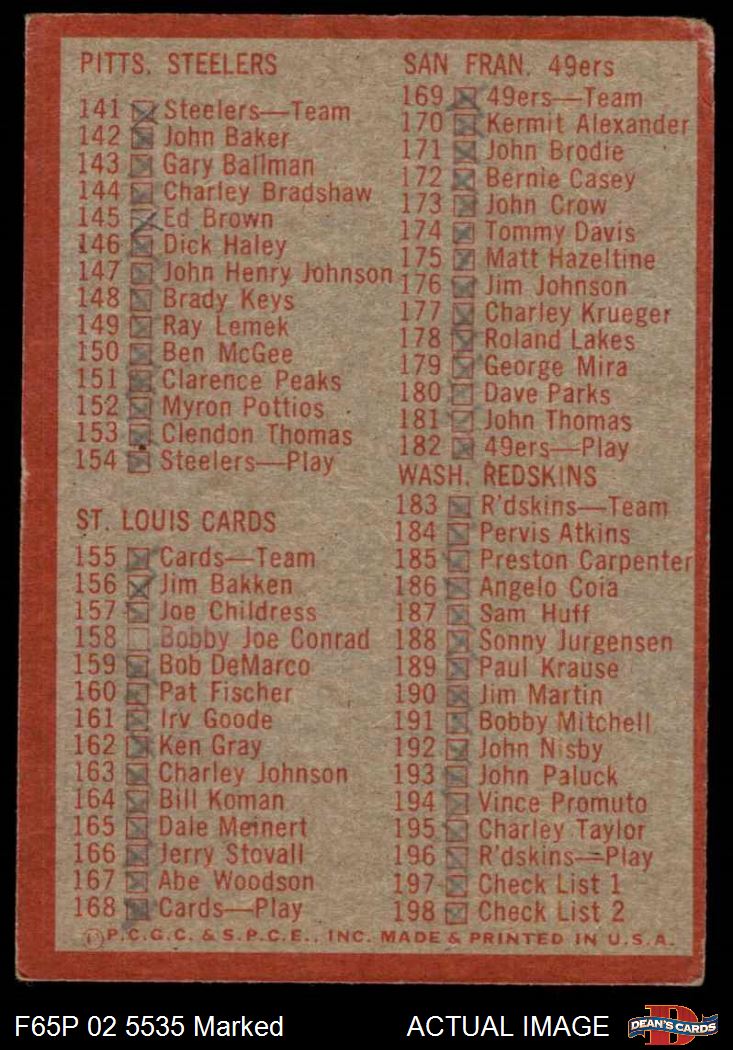 PITTS. STEELERS
141 Steelers—Team
142 John Baker
143 Gary Ballman
144 Charley Bradshaw
145 Ed Brown
146 Dick Haley
147 John Henry Johnson
148 Brady Keys
149 Ray Lemek
150 Ben McGee
151 Clarence Peaks
152 Myron Pottios
153 Clendon Thomas
154 Steelers—Play
ST. LOUIS CARDS
155 Cards—Team
156 Jim Bakken
157 Joe Childress
158 Bobby Joe Conrad
159 Bob DeMarco
160 Pat Fischer
161 Irv Goode
162 Ken Gray
163 Charley Johnson
164 Bill Koman
165 Dale Meinert
166 Jerry Stovall
167 Abe Woodson
168 Cards—Play
SAN FRAN. 49ers
169 49ers—Team
170 Kermit Alexander
171 John Brodie
172 Bernie Casey
173 John Crow
174 Tommy Davis
175 Matt Hazeltine
176 Jim Johnson
177 Charley Krueger
178 Roland Lakes
179 George Mira
180 Dave Parks
181 John Thomas
182 49ers—Play
WASH. REDSKINS
183 R'dskins—Team
184 Pervis Atkins
185 Preston Carpenter
186 Angelo Coia
187 Sam Huff
188 Sonny Jurgensen
189 Paul Krause
190 Jim Martin
191 Bobby Mitchell
192 John Nisby
193 John Paluck
194 Vince Promuto
195 Charley Taylor
196 R'dskins—Play
197 Check List 1
198 Check List 2
P.C.G.C. & S.P.C.E., INC. MADE & PRINTED IN U.S.A.
F65P 02 5535 Marked
ACTUAL IMAGE
D
DEAN'S CARDS